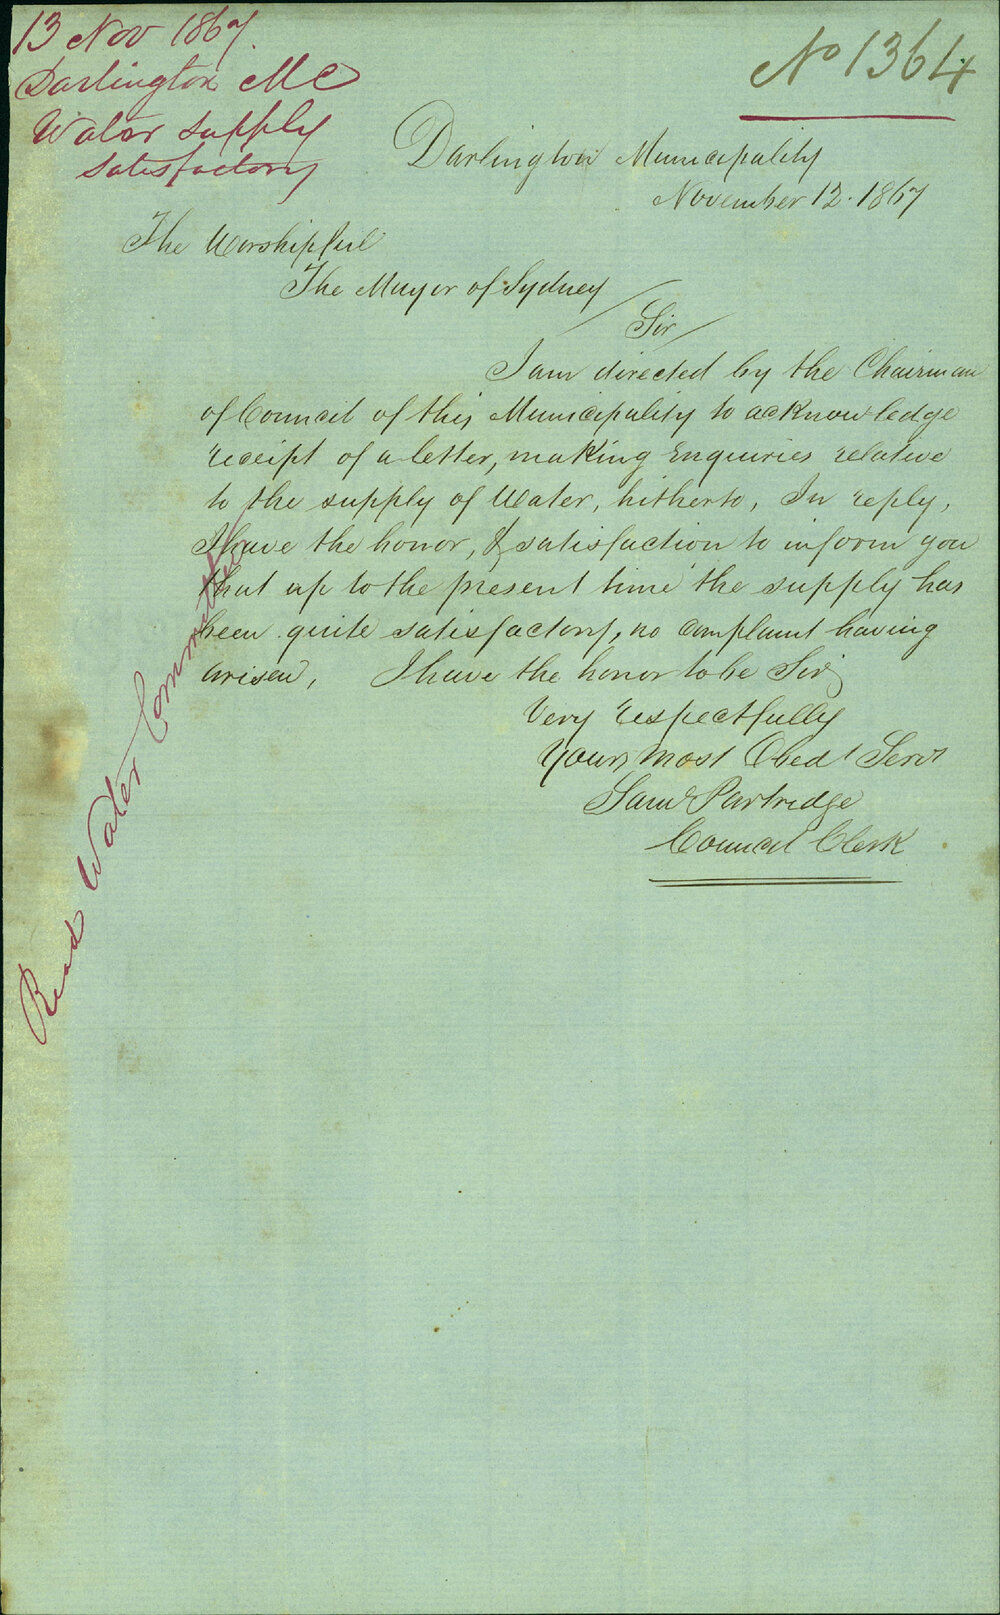 13 Nov 1867.
Darlington MC
Water supply
satisfactory
No 1364
Darlington Municipality
November 12. 1867
The Worshipful
The Mayor of Sydney
Sir
I am directed by the Chairman
of Council of this Municipality to acknowledge
receipt of a letter, making Enquiries relative
to the supply of Water, hitherto, In reply,
I have the honor, & satisfaction to inform you
that up to the present time the supply has
been quite satisfactory, no complaint having
arisen, I have the honor to be Sir
Very respectfully
Yours most Obedt Servt
Saml Partridge
Council Clerk
Read Water Committee